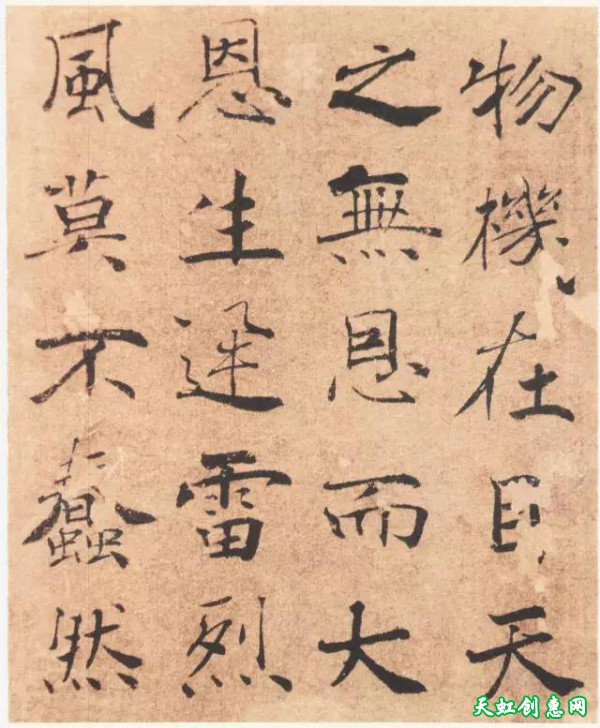 物機在目天
之無恩而大
恩生迅雷烈
風莫不蠢然
天虹创惠网